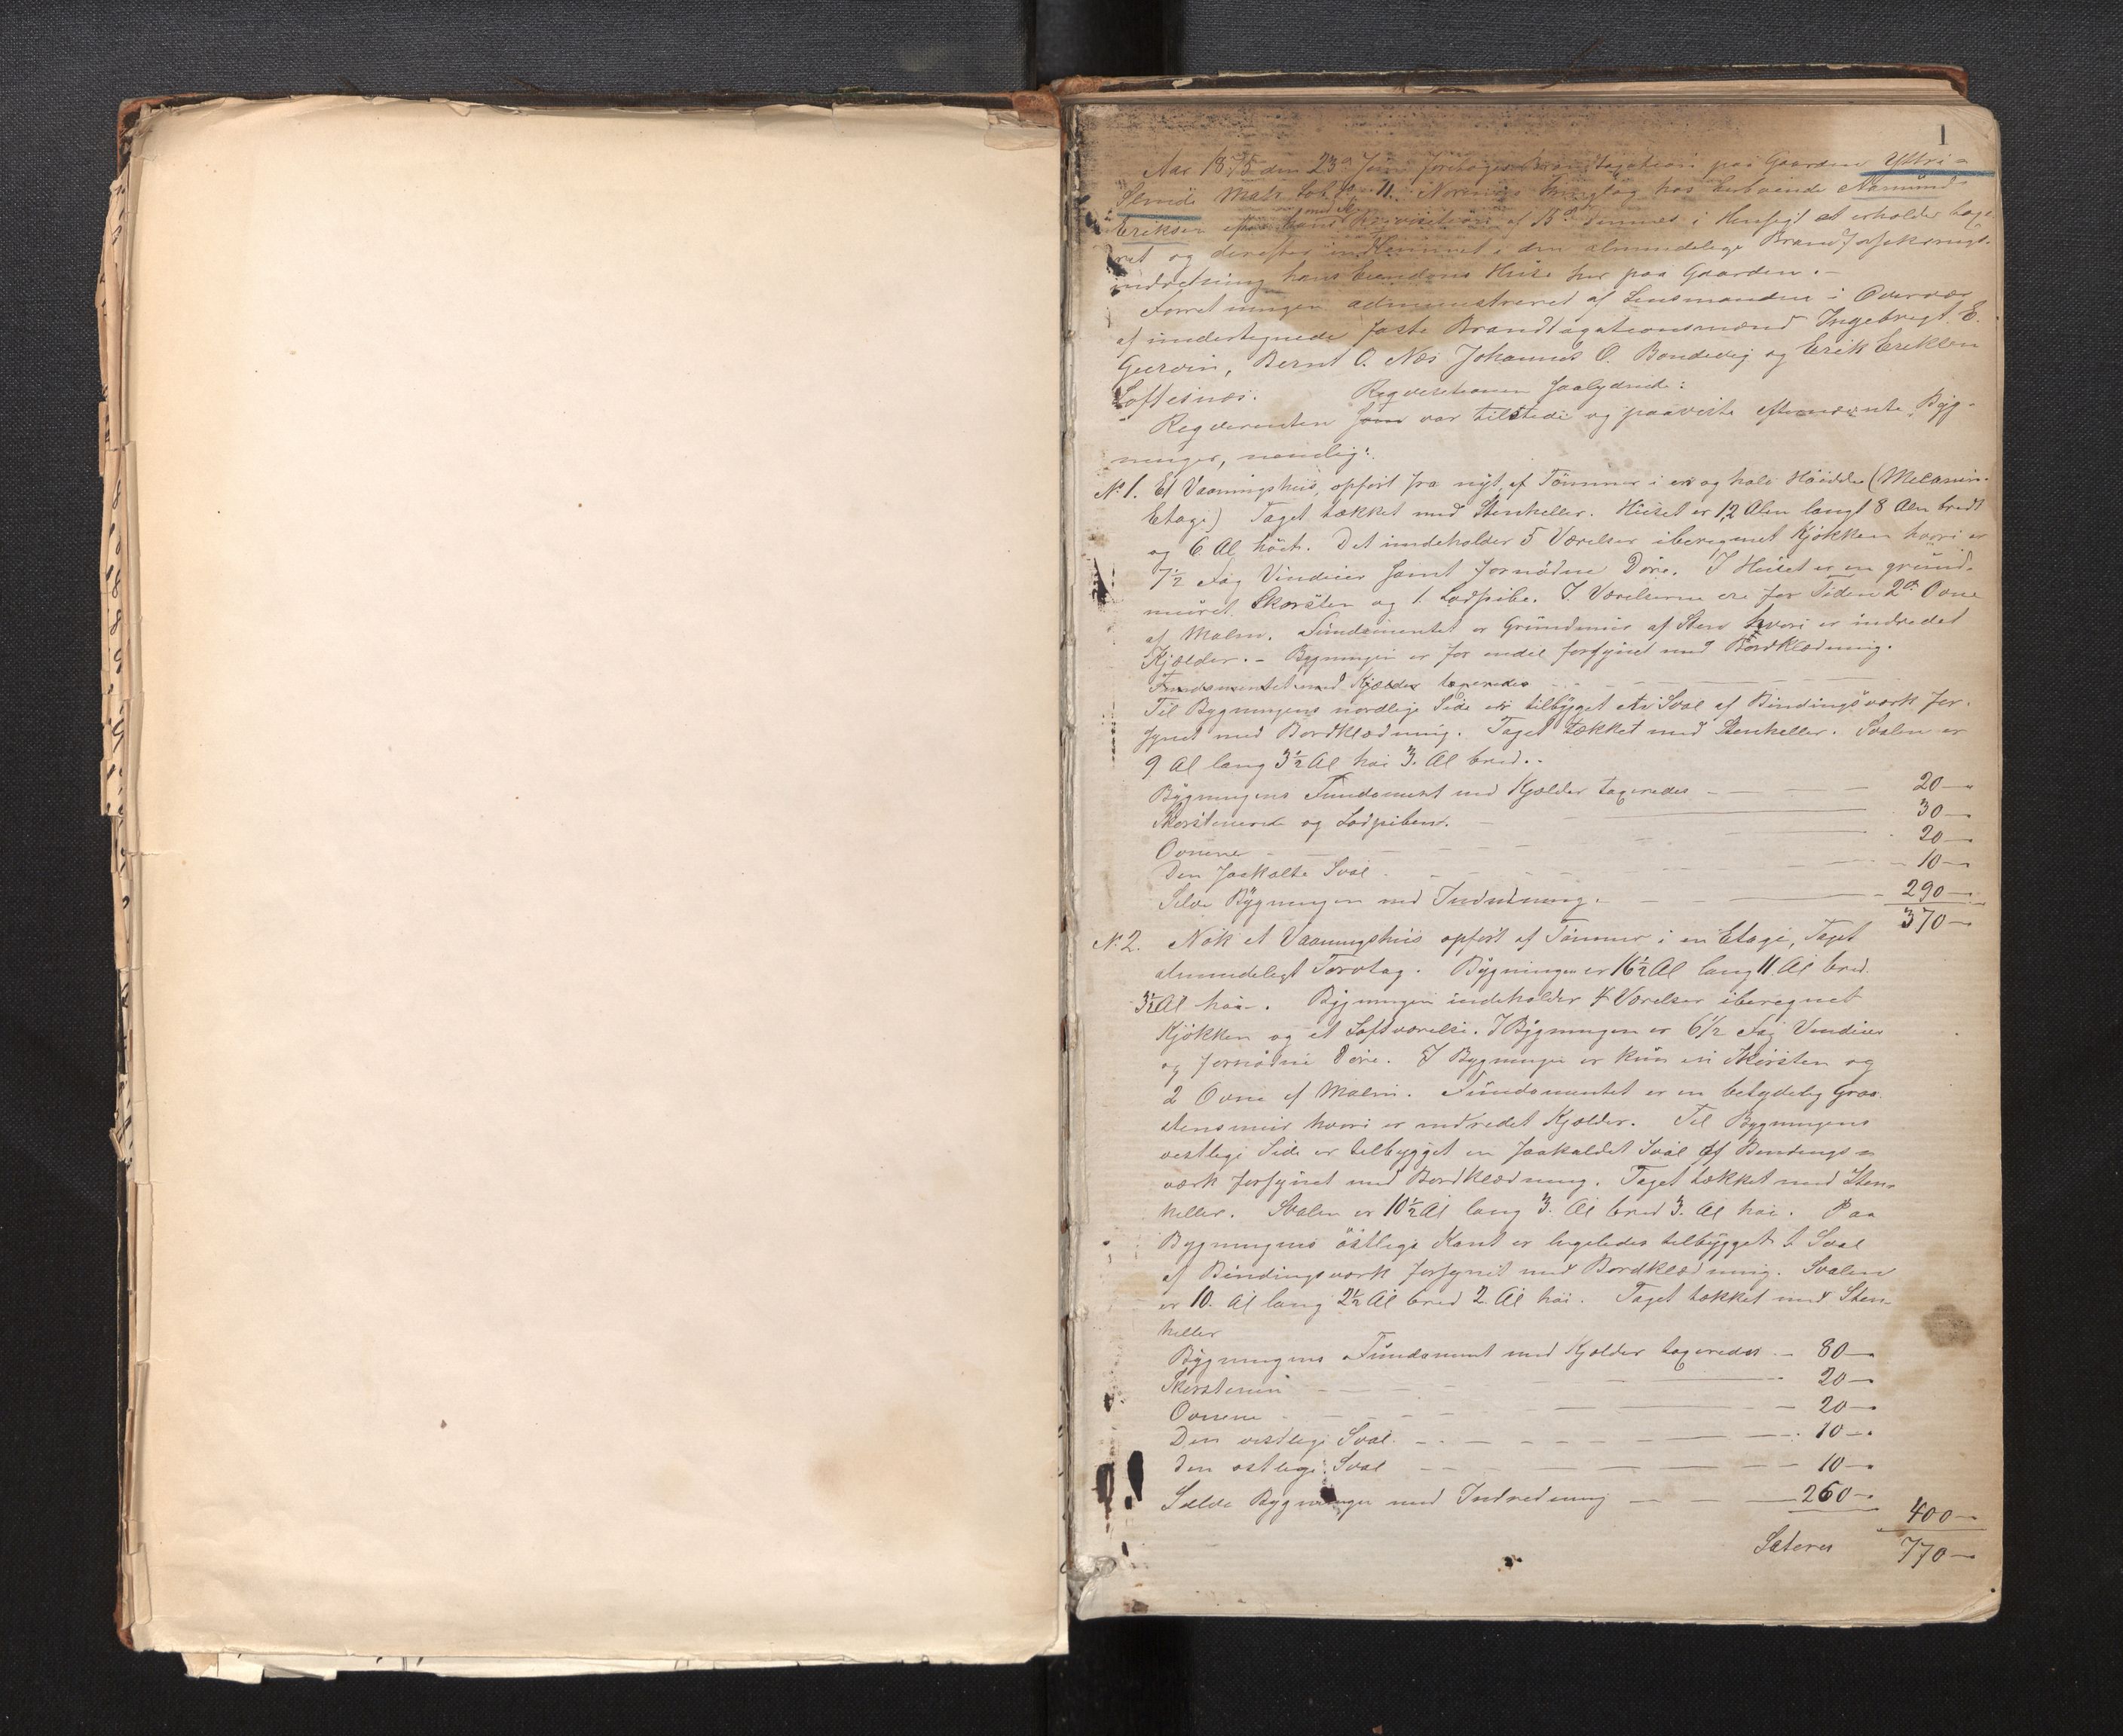 1
Aar 1875 den 23de Juni foretoges Brandtaxation paa Gaarden Yttri=
Slinde Matr Lob No 11. Norums Thinglag hos Enkemand
Eriksen af 15de dennes i Hensigt at erholde taxe-
ret og derefter indlemmet i den almindelige Brandforsikrings-
indretning hans Eiendoms Huse her paa Gaarden. -
Forretningen administreret af Lensmanden i Overvær
af undertegnede faste Brandtaxationsmænd Ingebregt E.
Gurvin, Bernt O. Næs Johannes O. Bondevig og Erik Eriksen
Loftesnæs. Reqvisitionen saalydende:
Reqvirenten som var tilstede og paaviste eftermeldte Byg-
ninger, nemlig:
No 1. Et Vaaningshuus, opført fra nyt, af Tømmer i en og halv Høide (Mezanin-
Etage) Taget tækket med Stenheller. Huset er 12 Alen langt 8 Alen bredt
og 6 Al høit. Det indeholder 5 Værelser iberegnet Kjøkken hvori er
7½ Fag Vinduer samt fornødne Døre. I Huset er en grund-
muret Skorsten og 1. Lodpibe. I Værelserne ere for Tiden 2de Ovne
af Malm. Fundamentet er Grundmur af Sten hvori er indredet
Kjælder. - Bygningen er for endel forsynet med Bordklædning.
Fundamentet med Kjælder taxeredes
Til Bygningens nordlige Side er tilbygget en Sval af Bindingsværk for-
synet med Bordklædning. Taget tækket med Stenheller. Svalen er
9 Al lang 3½ Al høi 3. Al bred. -
Bygningens Fundament med Kjælder taxeredes - 20 -
Skorstenene og Lodpiben. - 30 -
Ovnene - 20 -
Den saakaldte Sval - 10 -
Selve Bygningen med Indredning. - 290 -
370 -
No 2. Nok et Vaaningshuus opført af Tømmer i en Etage, Taget
almindeligt Torvtag. Bygningen er 16½ Al lang 11 Al bred
3½ Al høi. Bygningen indeholder 4 Værelser iberegnet
Kjøkken og et Loftværelse. I Bygningen er 6½ Fag Vinduer
og fornødne Døre. I Bygningen er kun en Skorsten og
2 Ovne af Malm. Fundamentet er en betydelig Graa-
stensmur hvori er indredet Kjælder. Til Bygningens
vestlige Side er tilbygget en saakaldet Sval af Bindings=
værk forsynet med Bordklædning. Taget tækket med Sten-
heller. Svalen er 10½ Al lang 3. Al bred 3. Al høi. Paa
Bygningens østlige Kant er ligeledes tilbygget 1 Sval
af Bindingsværk forsynet med Bordklædning. Svalen
er 10. Al lang 2½ Al bred 2. Al høi. Taget tækket med Sten-
heller
Bygningens Fundament med Kjælder taxeredes - 80 -
Skorstenen - 20 -
Ovnene - 20 -
Den vestlige Sval. - 10 -
Den østlige Sval - 10 -
Selve Bygningen med Indredning - 260 -
400 -
Lateres 770 -